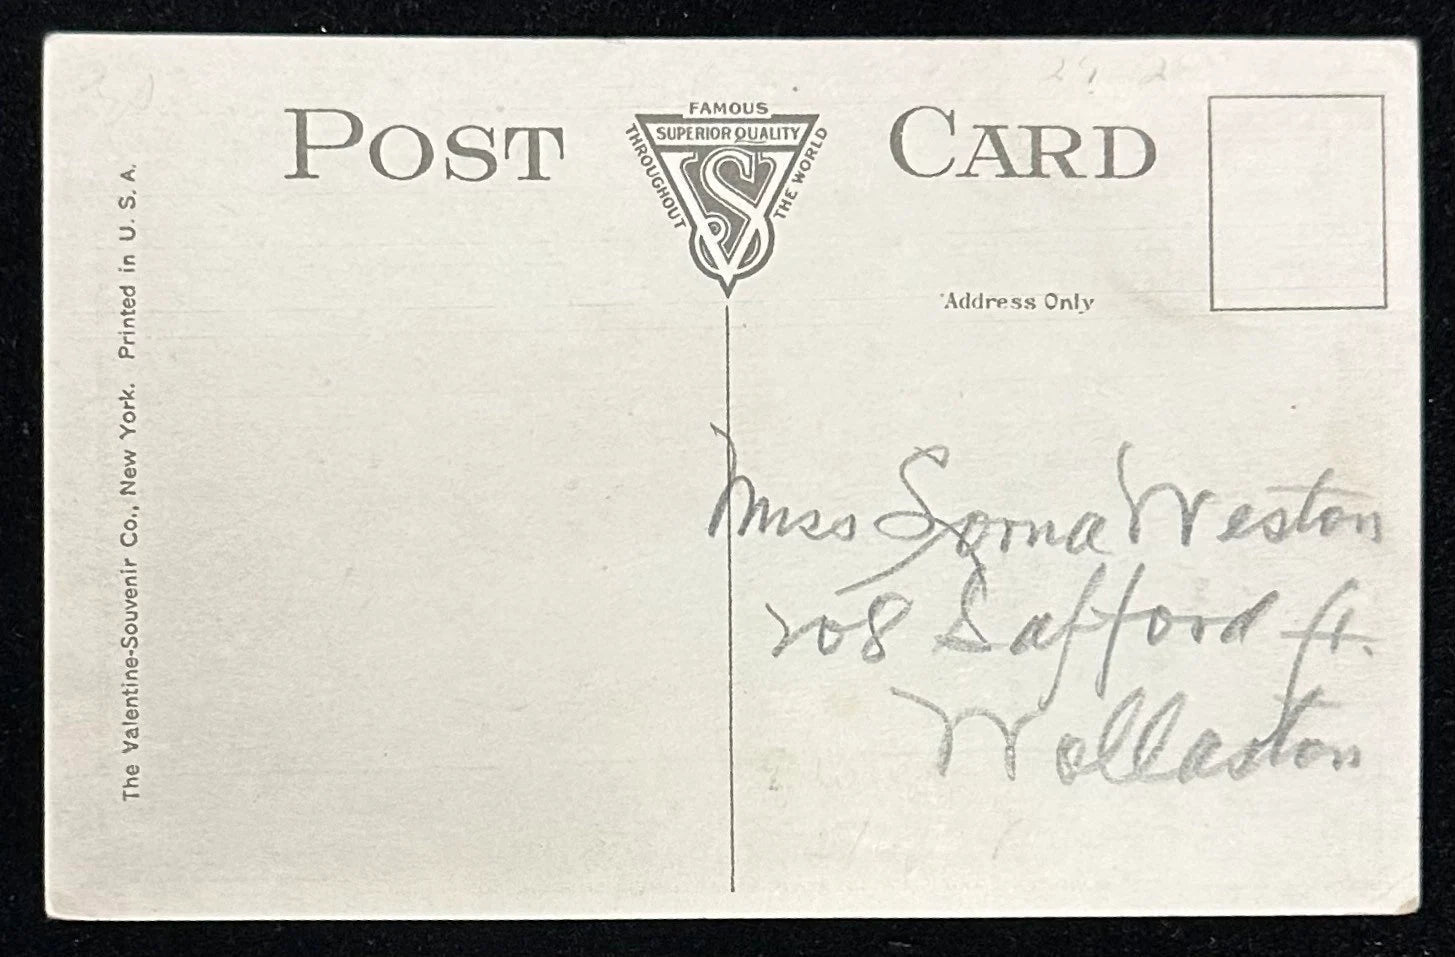 POST CARD
FAMOUS
SUPERIOR QUALITY
THROUGHOUT
THE WORLD
VS
Address Only
The Valentine-Souvenir Co., New York. Printed in U. S. A.
Miss Weston
208 Safford St.
Wollaston